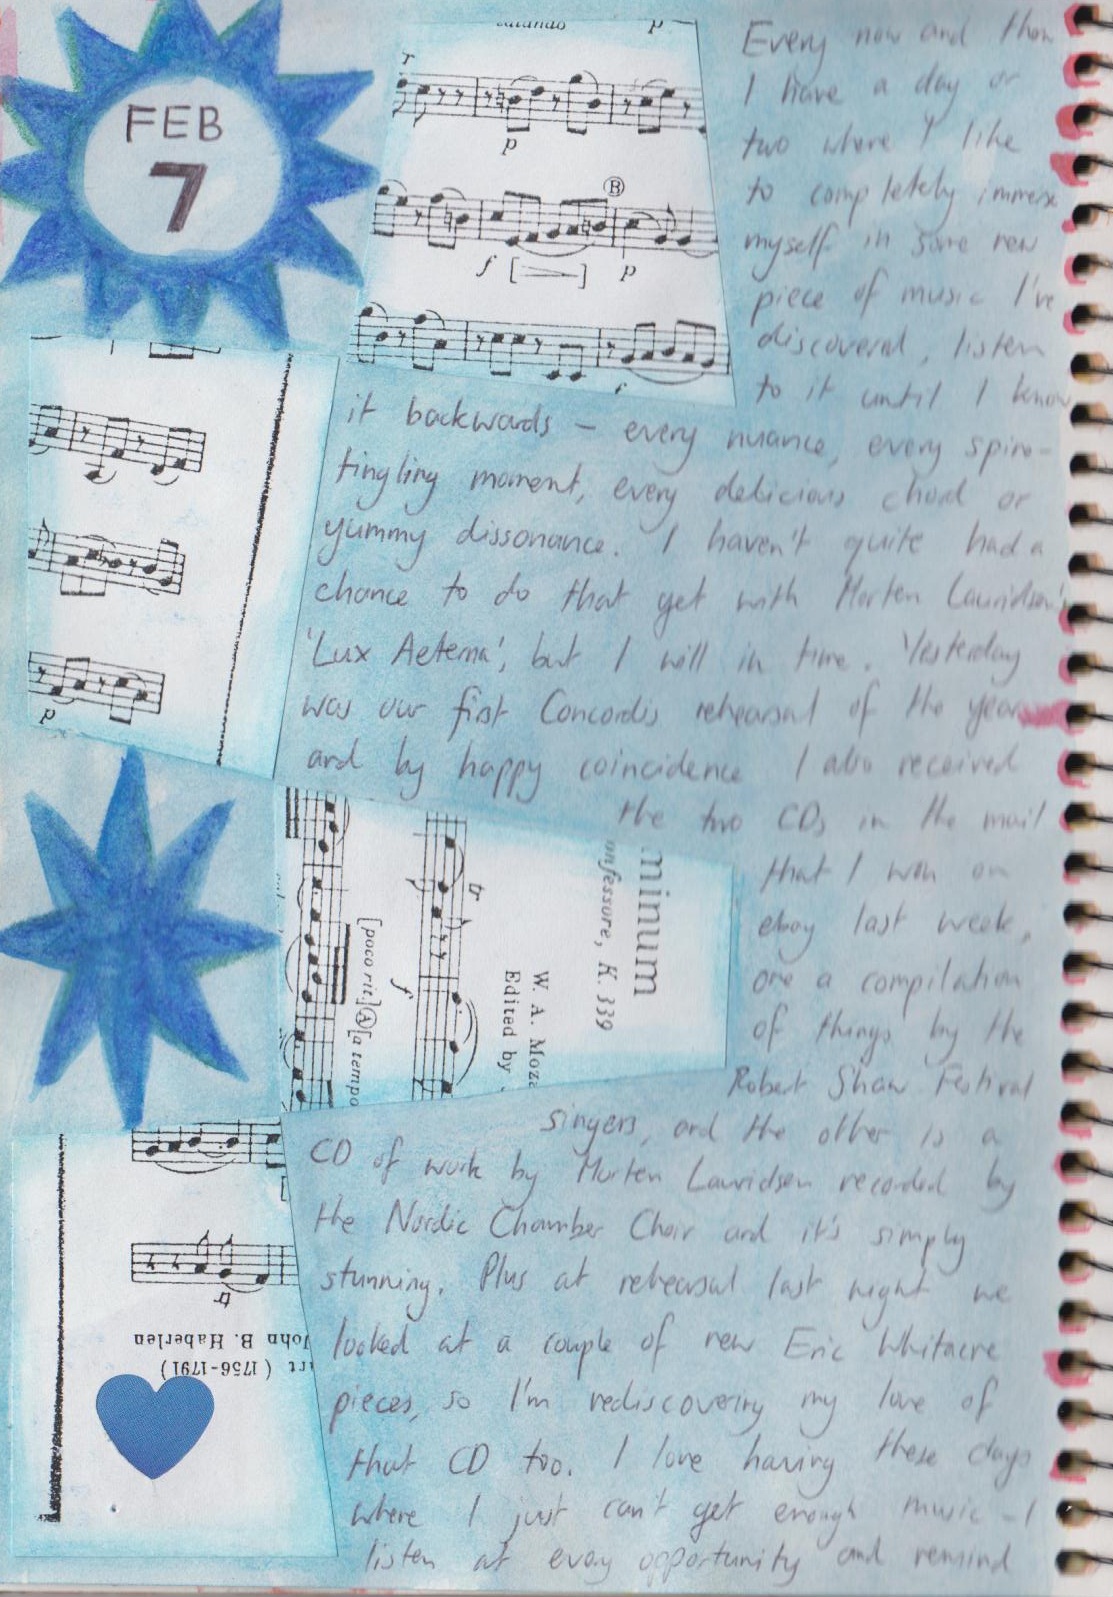 FEB
7
Every now and then
I have a day or
two where I like
to completely immerse
myself in some new
piece of music I've
discovered, listen
to it until I know
it backwards – every nuance, every spine-
tingling moment, every delicious chord or
yummy dissonance. I haven't quite had a
chance to do that yet with Morten Lauridsen's
'Lux Aeterna', but I will in time. Yesterday
was our first Concordis rehearsal of the year
and by happy coincidence I also received
the two CDs in the mail
that I won on
ebay last week,
one a compilation
of things by the
Robert Shaw Festival
singers, and the other is a
CD of work by Morten Lauridsen recorded by
the Nordic Chamber Choir and it's simply
stunning. Plus at rehearsal last night we
looked at a couple of new Eric Whitacre
pieces, so I'm rediscovering my love of
that CD too. I love having these days
where I just can't get enough music – I
listen at every opportunity and remind
p
r
p
B
f [ ] p
p
minum
onfessore, K. 339
W. A. Moza
Edited by
tr
f
[poco rit.] A [a tempo
tr
John B. Haberlen
art (1756-1791)